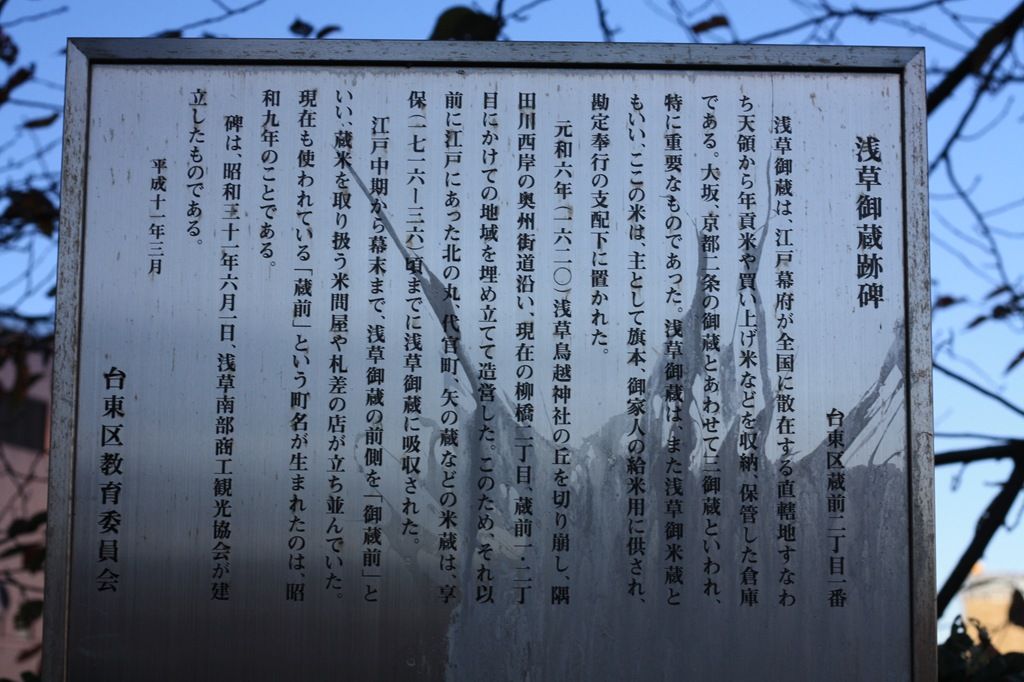 浅草御蔵跡碑
台東区蔵前二丁目一番
浅草御蔵は、江戸幕府が全国に散在する直轄地すなわ
ち天領から年貢米や買い上げ米などを収納、保管した倉庫
である。大坂、京都二条の御蔵とあわせて三御蔵といわれ、
特に重要なものであった。浅草御蔵は、また浅草御米蔵と
もいい、ここの米は、主として旗本、御家人の給米用に供され、
勘定奉行の支配下に置かれた。
元和六年（一六二〇）浅草鳥越神社の丘を切り崩し、隅
田川西岸の奥州街道沿い、現在の柳橋二丁目、蔵前一・二丁
目にかけての地域を埋め立てて造営した。このため、それ以
前に江戸にあった北の丸、代官町、矢の蔵などの米蔵は、享
保（一七一六－三六）頃までに浅草御蔵に吸収された。
江戸中期から幕末まで、浅草御蔵の前側を「御蔵前」と
いい、蔵米を取り扱う米問屋や札差の店が立ち並んでいた。
現在も使われている「蔵前」という町名が生まれたのは、昭
和九年のことである。
碑は、昭和三十一年六月一日、浅草南部商工観光協会が建
立したものである。
平成十一年三月
台東区教育委員会